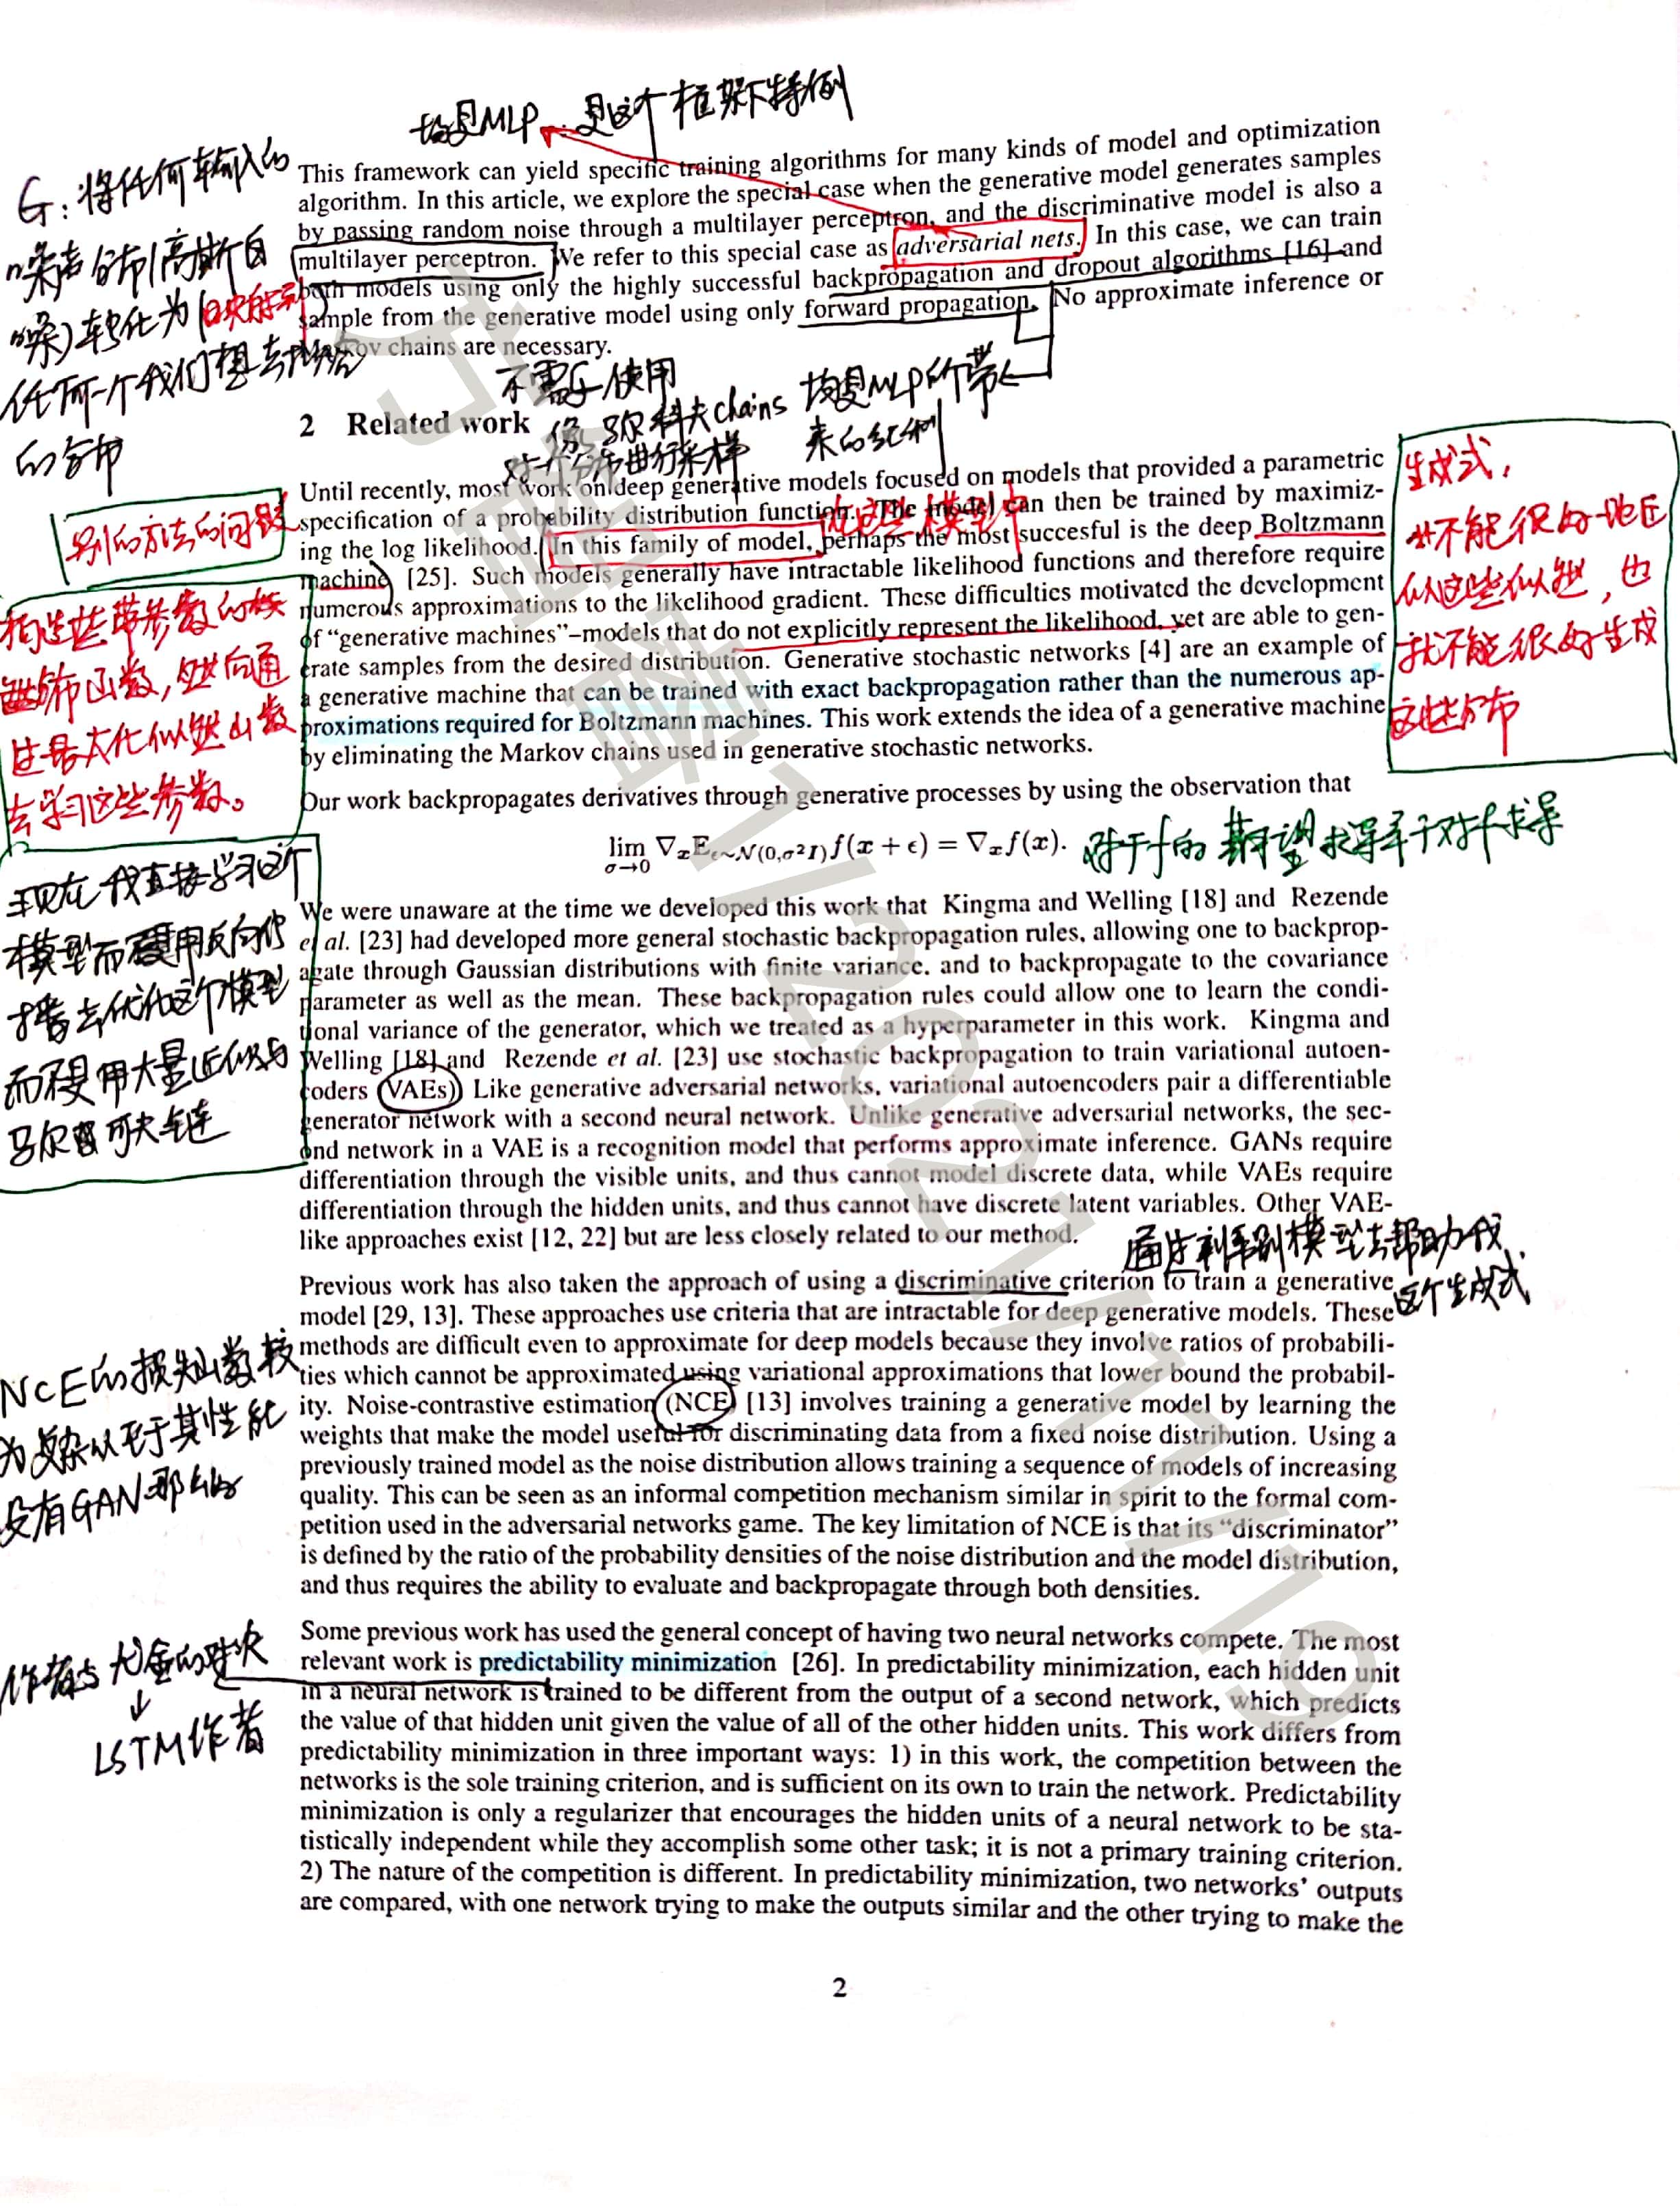 均是MLP 是这个框架下特例
G:将任何输入的
噪声分布(高斯白
噪)转化为(映射到)
任何一个我们想去
的分布
This framework can yield specific training algorithms for many kinds of model and optimization
algorithm. In this article, we explore the special case when the generative model generates samples
by passing random noise through a multilayer perceptron, and the discriminative model is also a
multilayer perceptron. We refer to this special case as adversarial nets. In this case, we can train
both models using only the highly successful backpropagation and dropout algorithms [16] and
sample from the generative model using only forward propagation. No approximate inference or
Markov chains are necessary.
不需要使用
马尔科夫chains
对于分布进行采样
均是MLP所带
来的红利
2 Related work
Until recently, most work on deep generative models focused on models that provided a parametric
specification of a probability distribution function. The model can then be trained by maximiz-
ing the log likelihood. In this family of model, perhaps the most succesful is the deep Boltzmann
machine [25]. Such models generally have intractable likelihood functions and therefore require
numerous approximations to the likelihood gradient. These difficulties motivated the development
of “generative machines”–models that do not explicitly represent the likelihood, yet are able to gen-
erate samples from the desired distribution. Generative stochastic networks [4] are an example of
a generative machine that can be trained with exact backpropagation rather than the numerous ap-
proximations required for Boltzmann machines. This work extends the idea of a generative machine
by eliminating the Markov chains used in generative stochastic networks.
在这些模型中
别的方法的问题
构造些带参数的
分布函数,
过最大化似然函数
去学习这些参数。
生成式,
不能很好地近
似这些似然,也
就不能很好生成
这些分布
Our work backpropagates derivatives through generative processes by using the observation that
lim σ→0 ∇xEϵ∼N(0,σ²I) f(x + ϵ) = ∇xf(x).
对于f的期望求导等于对f求导
现在我直接学习这个
模型而不要用反向传
播去优化这个模型
而不要用大量近似与
马尔可夫链
We were unaware at the time we developed this work that Kingma and Welling [18] and Rezende
et al. [23] had developed more general stochastic backpropagation rules, allowing one to backprop-
agate through Gaussian distributions with finite variance, and to backpropagate to the covariance
parameter as well as the mean. These backpropagation rules could allow one to learn the condi-
tional variance of the generator, which we treated as a hyperparameter in this work. Kingma and
Welling [18] and Rezende et al. [23] use stochastic backpropagation to train variational autoen-
coders (VAEs). Like generative adversarial networks, variational autoencoders pair a differentiable
generator network with a second neural network. Unlike generative adversarial networks, the sec-
ond network in a VAE is a recognition model that performs approximate inference. GANs require
differentiation through the visible units, and thus cannot model discrete data, while VAEs require
differentiation through the hidden units, and thus cannot have discrete latent variables. Other VAE-
like approaches exist [12, 22] but are less closely related to our method.
通过判别模型去帮助我
这个生成式
Previous work has also taken the approach of using a discriminative criterion to train a generative
model [29, 13]. These approaches use criteria that are intractable for deep generative models. These
methods are difficult even to approximate for deep models because they involve ratios of probabili-
ties which cannot be approximated using variational approximations that lower bound the probabil-
ity. Noise-contrastive estimation (NCE) [13] involves training a generative model by learning the
weights that make the model useful for discriminating data from a fixed noise distribution. Using a
previously trained model as the noise distribution allows training a sequence of models of increasing
quality. This can be seen as an informal competition mechanism similar in spirit to the formal com-
petition used in the adversarial networks game. The key limitation of NCE is that its “discriminator”
is defined by the ratio of the probability densities of the noise distribution and the model distribution,
and thus requires the ability to evaluate and backpropagate through both densities.
NCE的损失函数较
为复杂以至于其性能
没有GAN那么好
Some previous work has used the general concept of having two neural networks compete. The most
relevant work is predictability minimization [26]. In predictability minimization, each hidden unit
in a neural network is trained to be different from the output of a second network, which predicts
the value of that hidden unit given the value of all of the other hidden units. This work differs from
predictability minimization in three important ways: 1) in this work, the competition between the
networks is the sole training criterion, and is sufficient on its own to train the network. Predictability
minimization is only a regularizer that encourages the hidden units of a neural network to be sta-
tistically independent while they accomplish some other task; it is not a primary training criterion.
2) The nature of the competition is different. In predictability minimization, two networks’ outputs
are compared, with one network trying to make the outputs similar and the other trying to make the
作者与大金的
↓
LSTM作者
2
2021/11/19